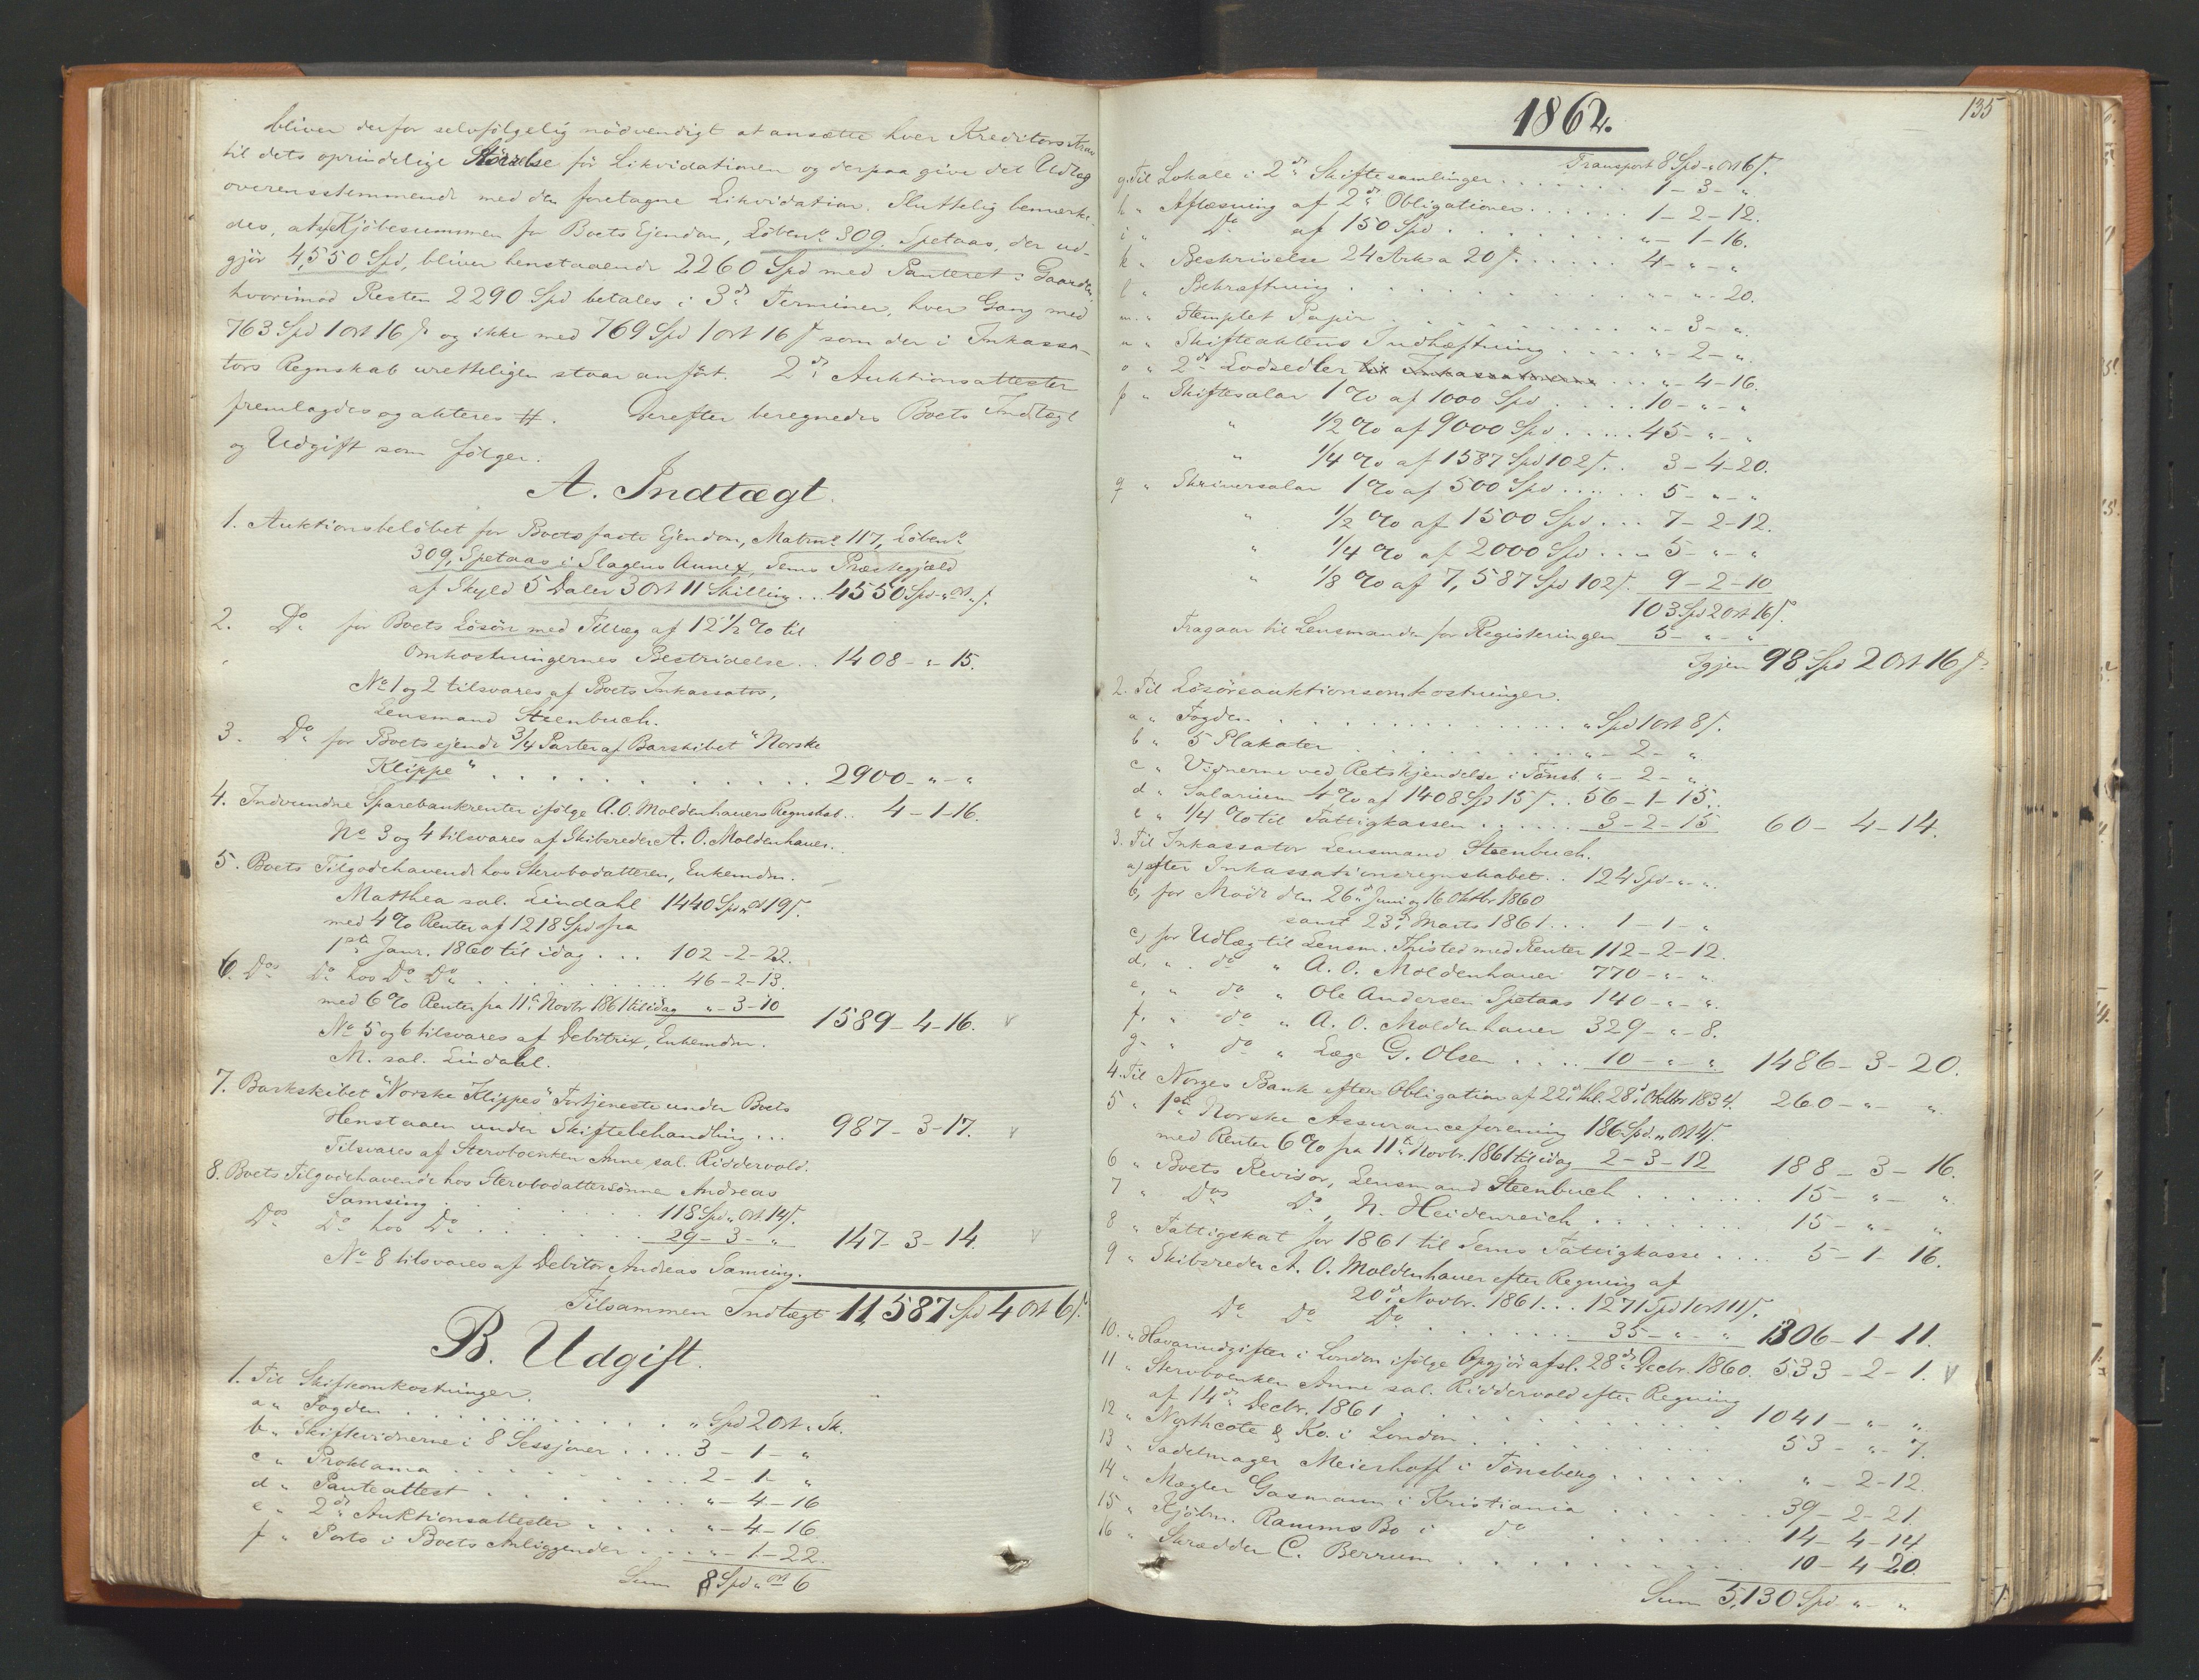 bliver derfor selvfölgelig nödvendigt at ansætte hver Kreditors Krav
til dets oprindelige Störrelse för Likvidationen og derpaa give det Udlæg
overensstemmende med den foretagne Likvidation. Sluttelig bemærke-
des, at af Kjöbesummen for Boets Ejendom, Löben⁰ 309. Spetaas, der ud-
gjör 4,550 Spd, bliver henstaaende 2260 Spd med Panteret i Gaarden
hvorimod Resten 2290 Spd betales i 3de Terminer, hver Gang med
763 Spd 1 ort 16 ß og ikke med 769 Spd 1 ort 16 ß som der i Inkassa-
tors Regnskab uretteligen staar anfört. 2de Auktionsattester
fremlagdes og akteres #. Derefter beregnedes Boets Indtægt
og Udgift som fölger:
A. Indtægt.
1. Auktionsbelöbet for Boets faste Ejendom, Matrn⁰ 117, Löben⁰
309, Spetaas i Slagens Annex, Sems Præstegjæld
af Skyld 5 Daler 3 Ort 11 Skilling .. 4550 Spd " ort " ß.
2. Do for Boets Lösöre med Tillæg af 12 1/2 % til
Omkostningernes Bestridelse .. 1408 - " - 15.
No 1 og 2 tilsvares af Boets Inkassator,
Lensmand Steenbuch.
3. Do for Boets ejende 3/4 Parter af Barkskibet "Norske
Klippe" . . . . . . . . 2900 - " - "
4. Indvundne Sparebankrenter ifölge A. O. Moldenhauers Regnskab .. 4 - 1 - 16.
No 3 og 4 tilsvares af Skibsreder A. O. Moldenhauer.
5. Boets Tilgodehavende hos Stervbodatteren, Enkemdm.
Matthea sal. Lindahl 1440 Spd " ort 19 ß.
med 4 % Renter af 1218 Spd fra
1ste Janr. 1860 til idag . . . 102 - 2 - 22.
6. Dos Do hos Do Do . . . . . . 46 - 2 - 13.
med 6 % Renter fra 11te Novbr 1861 til idag " - 3 - 10 1589 - 4 - 16. v
No 5 og 6 tilsvares af Debitrix, Enkemdm.
M. sal. Lindahl.
7. Barkskibet "Norske Klippes" Fortjeneste under Boets
Henstaaen under Skiftebehandling . . . 987 - 3 - 17. v
Tilsvares af Stervboenken Anne sal. Riddervold.
8. Boets Tilgodehavende hos Stervbodattersönnen Andreas
Samsing . . . . . 118 Spd " Ort 14 ß.
Dos Do hos Do . . . . . 29 - 3 - " 147 - 3 - 14. v
No 8 tilsvares af Debitor Andreas Samsing.
Tilsammen Indtægt 11,587 Spd 4 Ort 6 ß.
B. Udgift.
1. Til Skifteomkostninger.
a " Fogden . . . . . . . " Spd 2 Ort " Sk.
b " Skiftevidnerne i 8 Sessjoner . . . . 3 - 1 - "
c " Proklama . . . . . . . 2 - 1 - "
d " Panteattest . . . . . . . " - 4 - 16
e " 2de Auktionsattester . . . . . " - 4 - 16
f " Porto i Boets Anliggender . . . " - 1 - 22.
Sum 8 Spd " ort 6
1862.
135
Transport 8 Spd " Ort 6 ß.
g. Til Lokale i 2de Skiftesamlinger . . . . . . . 1 - 3 - "
h " Aflæsning af 2de Obligationer . . . . . . 1 - 2 - 12.
i " Do af 150 Spd . . . . . . . " - 1 - 16.
k " Beskrivelse 24 Ark a 20 ß . . . . . 4 - " - "
l " Bekræftning . . . . . . . . " - " - 20.
m " Stemplet Papir . . . . . . . " - 3 - "
n " Skifteaktens Indhæftning . . . . . " - 2 - "
o " 2de Lodsedler til Inkassatorerne . . . " - 4 - 16.
p " Skiftesalar 1 % af 1000 Spd . . . . 10 - " - "
" 1/2 % af 9000 Spd . . . . . 45 - " - "
" 1/4 % af 1587 Spd 102 ß . . 3 - 4 - 20.
q " Skriversalar 1 % af 500 Spd . . . . . 5 - " - "
" 1/2 % af 1500 Spd . . . 7 - 2 - 12.
" 1/4 % af 2000 Spd . . . 5 - " - "
" 1/8 % af 7,587 Spd 102 ß. 9 - 2 - 10
103 Spd 2 Ort 16 ß.
Fragaar til Lensmanden for Registeringen 5 - " - "
Igjen 98 Spd 2 Ort 16 ß.
2. Til Lösöreauktionsomkostninger.
a " Fogden . . . . . . . . . " Spd 1 ort 8 ß.
b " 5 Plakater . . . . . . . . " - 2 - "
c " Vidnerne ved Retskjendelse i Tönsb. " - 2 - "
d " Salarium 4 % af 1408 Spd 15 ß . . 56 - 1 - 15.
e " 1/4 % til Fattigkassen . . . . . . 3 - 2 - 15 60 - 4 - 14.
3. Til Inkassator Lensmand Steenbuch.
a) efter Inkassationsregnskabet . . 124 Spd - " - "
b, for Möde den 26de Juni og 16 Oktbr 1860
samt 23de Marts 1861 . . . 1 - 1 - "
c) for Udlæg til Lensm. Thisted med Renter 112 - 2 - 12.
d, " do " A. O. Moldenhauer 770 - " - "
e, " do " Ole Andersen Spetaas 140 - " - "
f. " do " A. O. Moldenhauer 329 - " - 8.
g. " do " Læge G. Olsen . . . . 10 - " - " 1486 - 3 - 20.
4. Til Norges Bank efter Obligation af 22de thl. 28de Oktbr 1834. 260 - " - "
5 " 1ste Norske Assuranceforening 186 Spd " Ort 4 ß.
med Renter 6 % fra 11te Novbr. 1861 til idag 2 - 3 - 12 188 - 3 - 16.
6 " Boets Revisor, Lensmand Steenbuch . . . . . . 15 - " - "
7 " Dos Do, N. Heidenreich . . . . . . . 15 - " - "
8 " Fattigskat for 1861 til Sems Fattigkasse . . . . 5 - 1 - 16.
9 " Skibsreder A. O. Moldenhauer efter Regning af
20de Novbr. 1861 . . . 1271 Spd 1 ort 11 ß.
Do Do Do . . . . . . 35 - " - " 1306 - 1 - 11.
10. " Havneudgifter i London ifölge Opgjör afsl. 28de Decbr. 1860. 533 - 2 - 1. v
11 " Stervboenken Anne sal. Riddervold efter Regning
af 14de Decbr. 1861 . . . . . . . 1041 - " - "
12 " Northcote & Ko. i London . . . . . . . . 53 - " - 7.
13 " Sadelmager Meierhoff i Tönsberg . . . . . . " - 2 - 12.
14 " Mægler Gasmann i Kristiania . . . . . . 39 - 2 - 21.
15 " Kjöbm. Ramms Bo i do . . . . . . . 14 - 4 - 14.
16 " Skrædder C. Berrum . . . . . . . . . 10 - 4 - 20.
Sum 5,130 Spd - " - "